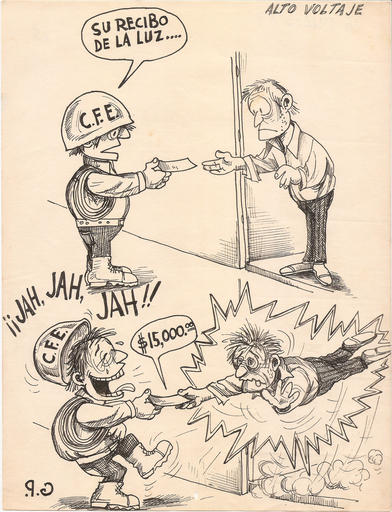 ALTO VOLTAJE
SU RECIBO
DE LA LUZ....
C.F.E.
¡¡JAH, JAH,
JAH!!
C.F.E.
$15,000.00
G.P.